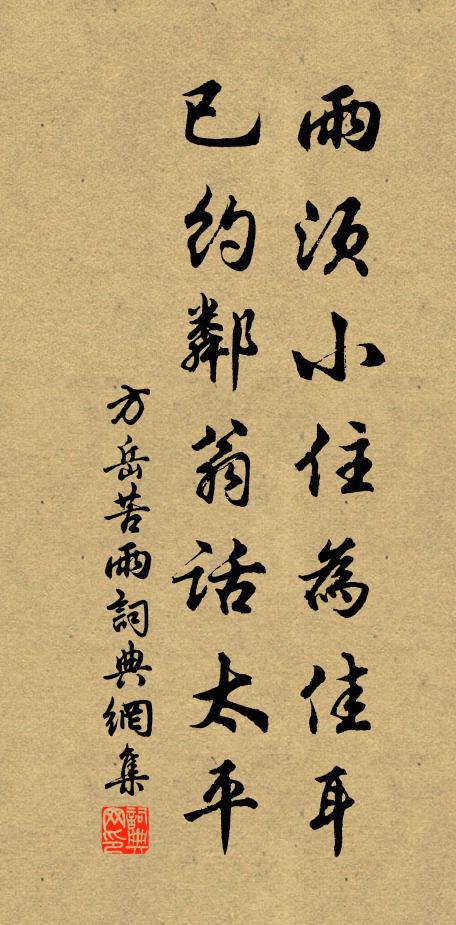 雨須小住為佳耳
已約鄰翁話太平
方岳苦雨詞典網集
詞典网印